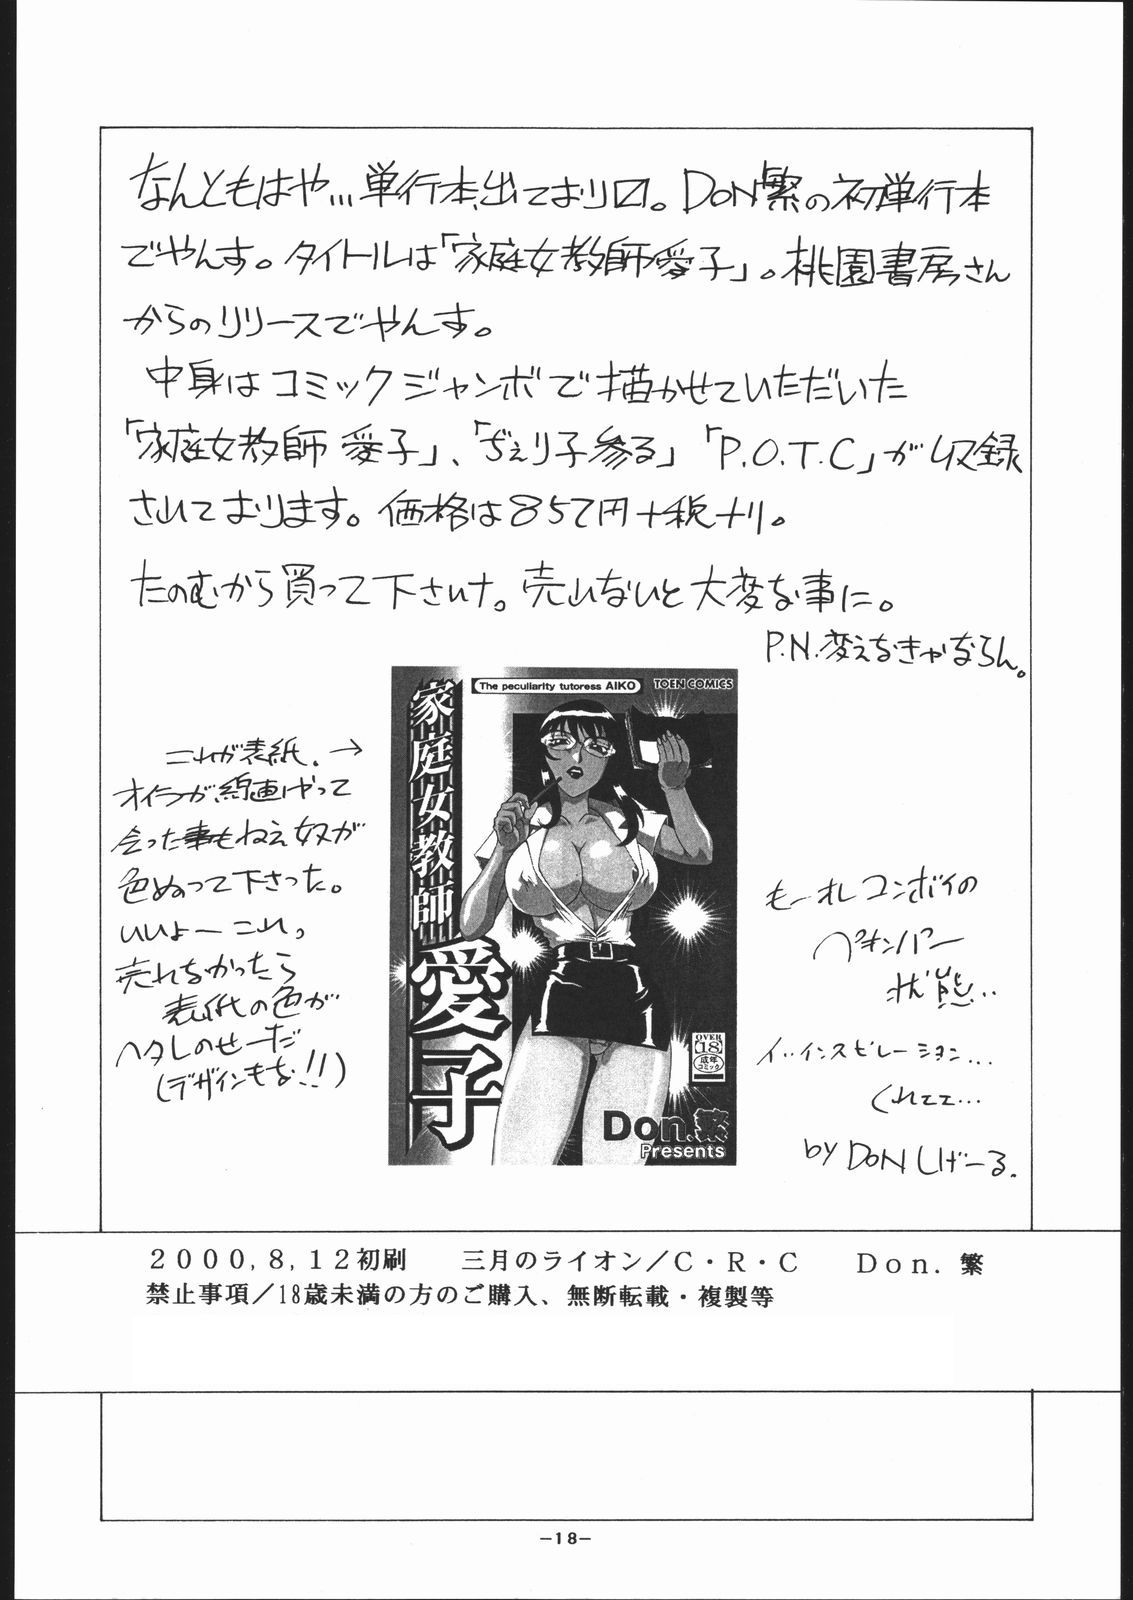 なんともはや…単行本出ており〼。DON繁の初単行本
でやんす。タイトルは「家庭女教師愛子」。桃園書房さん
からのリリースでやんす。
中身はコミックジャンボで描かせていただいた
「家庭女教師 愛子」、「ぢぇり子参る」「P.O.T.C」が収録
されております。価格は857円+税ナリ。
たのむから買って下さいナ。売れないと大変な事に。
P.N.変えなきゃならん。
これが表紙。→
オイラが線画けやって
会った事もねえ奴が
色ぬって下さった。
いいよー これ。
売れなかったら
表紙の色が
ヘタレのせーだ
(デザインもな!!)
The peculiarity tutoress AIKO
TOEN COMICS
家庭女教師
愛子
OVER
18
成年
コミック
Don.繁
Presents
もーオレ コンボイの
状態…
イ、インスピレーション…
くれェェ…
by DON しげーる.
2000,8,12初刷 三月のライオン/C・R・C Don.繁
禁止事項/18歳未満の方のご購入、無断転載・複製等
-18-